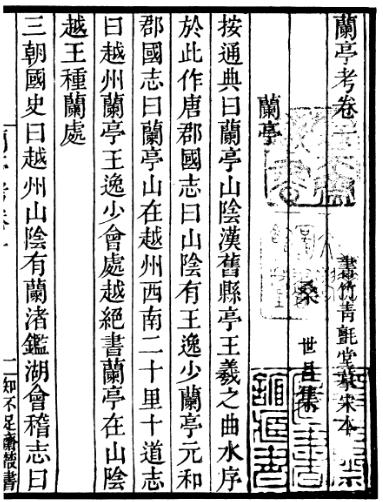 蘭亭考卷一
畫竹青氈堂摹宋本
桑世昌集
蘭亭
按通典曰蘭亭山陰漢舊縣亭王羲之曲水序
於此作唐郡國志曰山陰有王逸少蘭亭元和
郡國志曰蘭亭山在越州西南二十里十道志
曰越州蘭亭王逸少會處越絕書蘭亭在山陰
越王種蘭處
三朝國史曰越州山陰有蘭渚鑑湖會稽志曰
知不足齋叢書